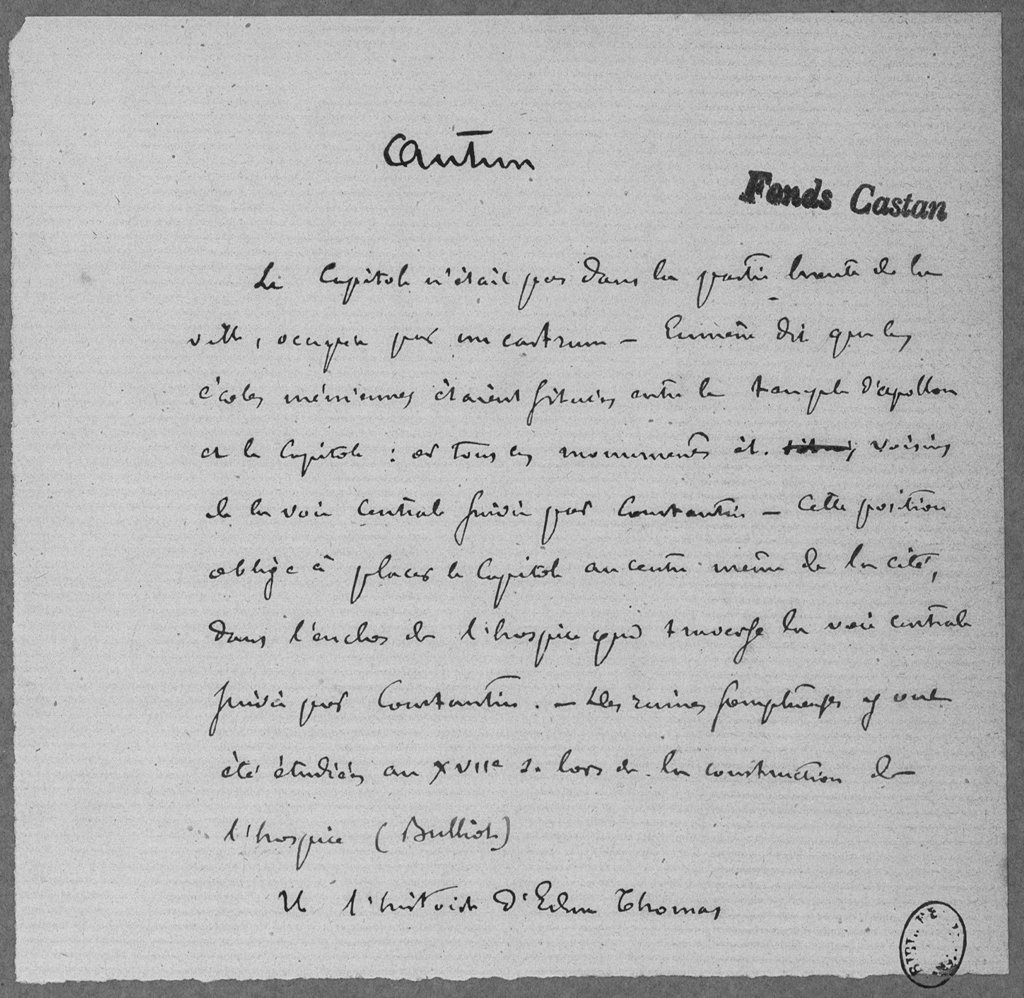 Autun
Fonds Castan
Le Capitole n'était pas dans la partie haute de la
ville, occupée par un castrum — Eumène dit que les
écoles méniennes étaient situées entre le temple d'apollon
et le Capitole : or tous les monuments ét. voisins
de la voie centrale suivie par Constantin — Cette position
oblige à placer le Capitole au centre même de la cité,
dans l'enclos de l'hospice que traverse la voie centrale
suivie par Constantin. — Des ruines somptueuses y ont
été étudiées au XVIIe s. lors de la construction de
l'hospice (Bulliot)
V l'histoire d'Edme Thomas